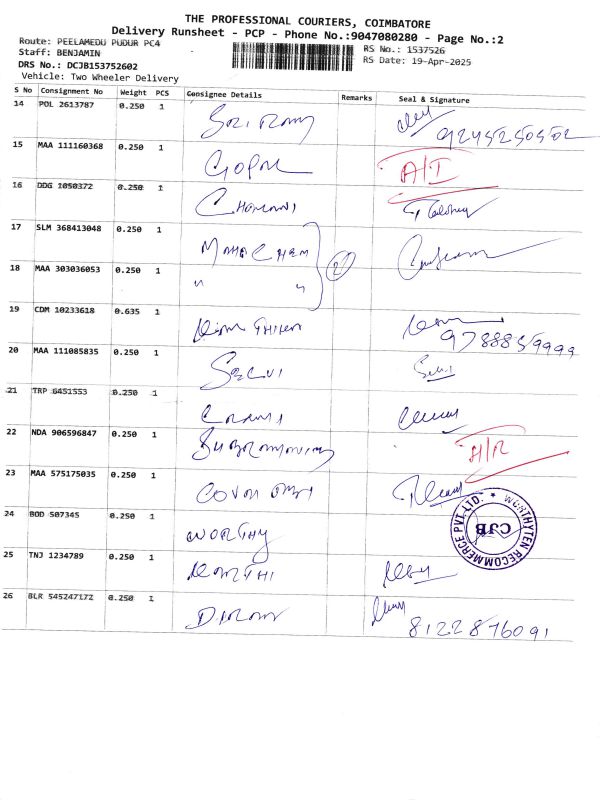 THE PROFESSIONAL COURIERS, COIMBATORE
Delivery Runsheet - PCP - Phone No.:9047080280 - Page No.:2
Route: PEELAMEDU PUDUR PC4
RS No.: 1537526
Staff: BENJAMIN
RS Date: 19-Apr-2025
DRS No.: DCJB153752602
Vehicle: Two Wheeler Delivery
S No Consignment No Weight PCS Consignee Details Remarks Seal & Signature
14 POL 2613787 0.250 1
9245250502
15 MAA 111160368 0.250 1 GOPAL
16 DDG 1050372 0.250 1
17 SLM 368413048 0.250 1 2
18 MAA 303036053 0.250 1 " "
19 CDM 10233618 0.635 1
20 MAA 111085835 0.250 1 SELVI
21 TRP 6451553 0.250 1
22 NDA 906596847 0.250 1
23 MAA 575175035 0.250 1
24 BOD 507345 0.250 1 WORTHY
WORTHYTEN RECOMMERCE PVT.LTD. ★ CJB
25 TNJ 1234789 0.250 1
26 BLR 545247172 0.250 1
8122876091